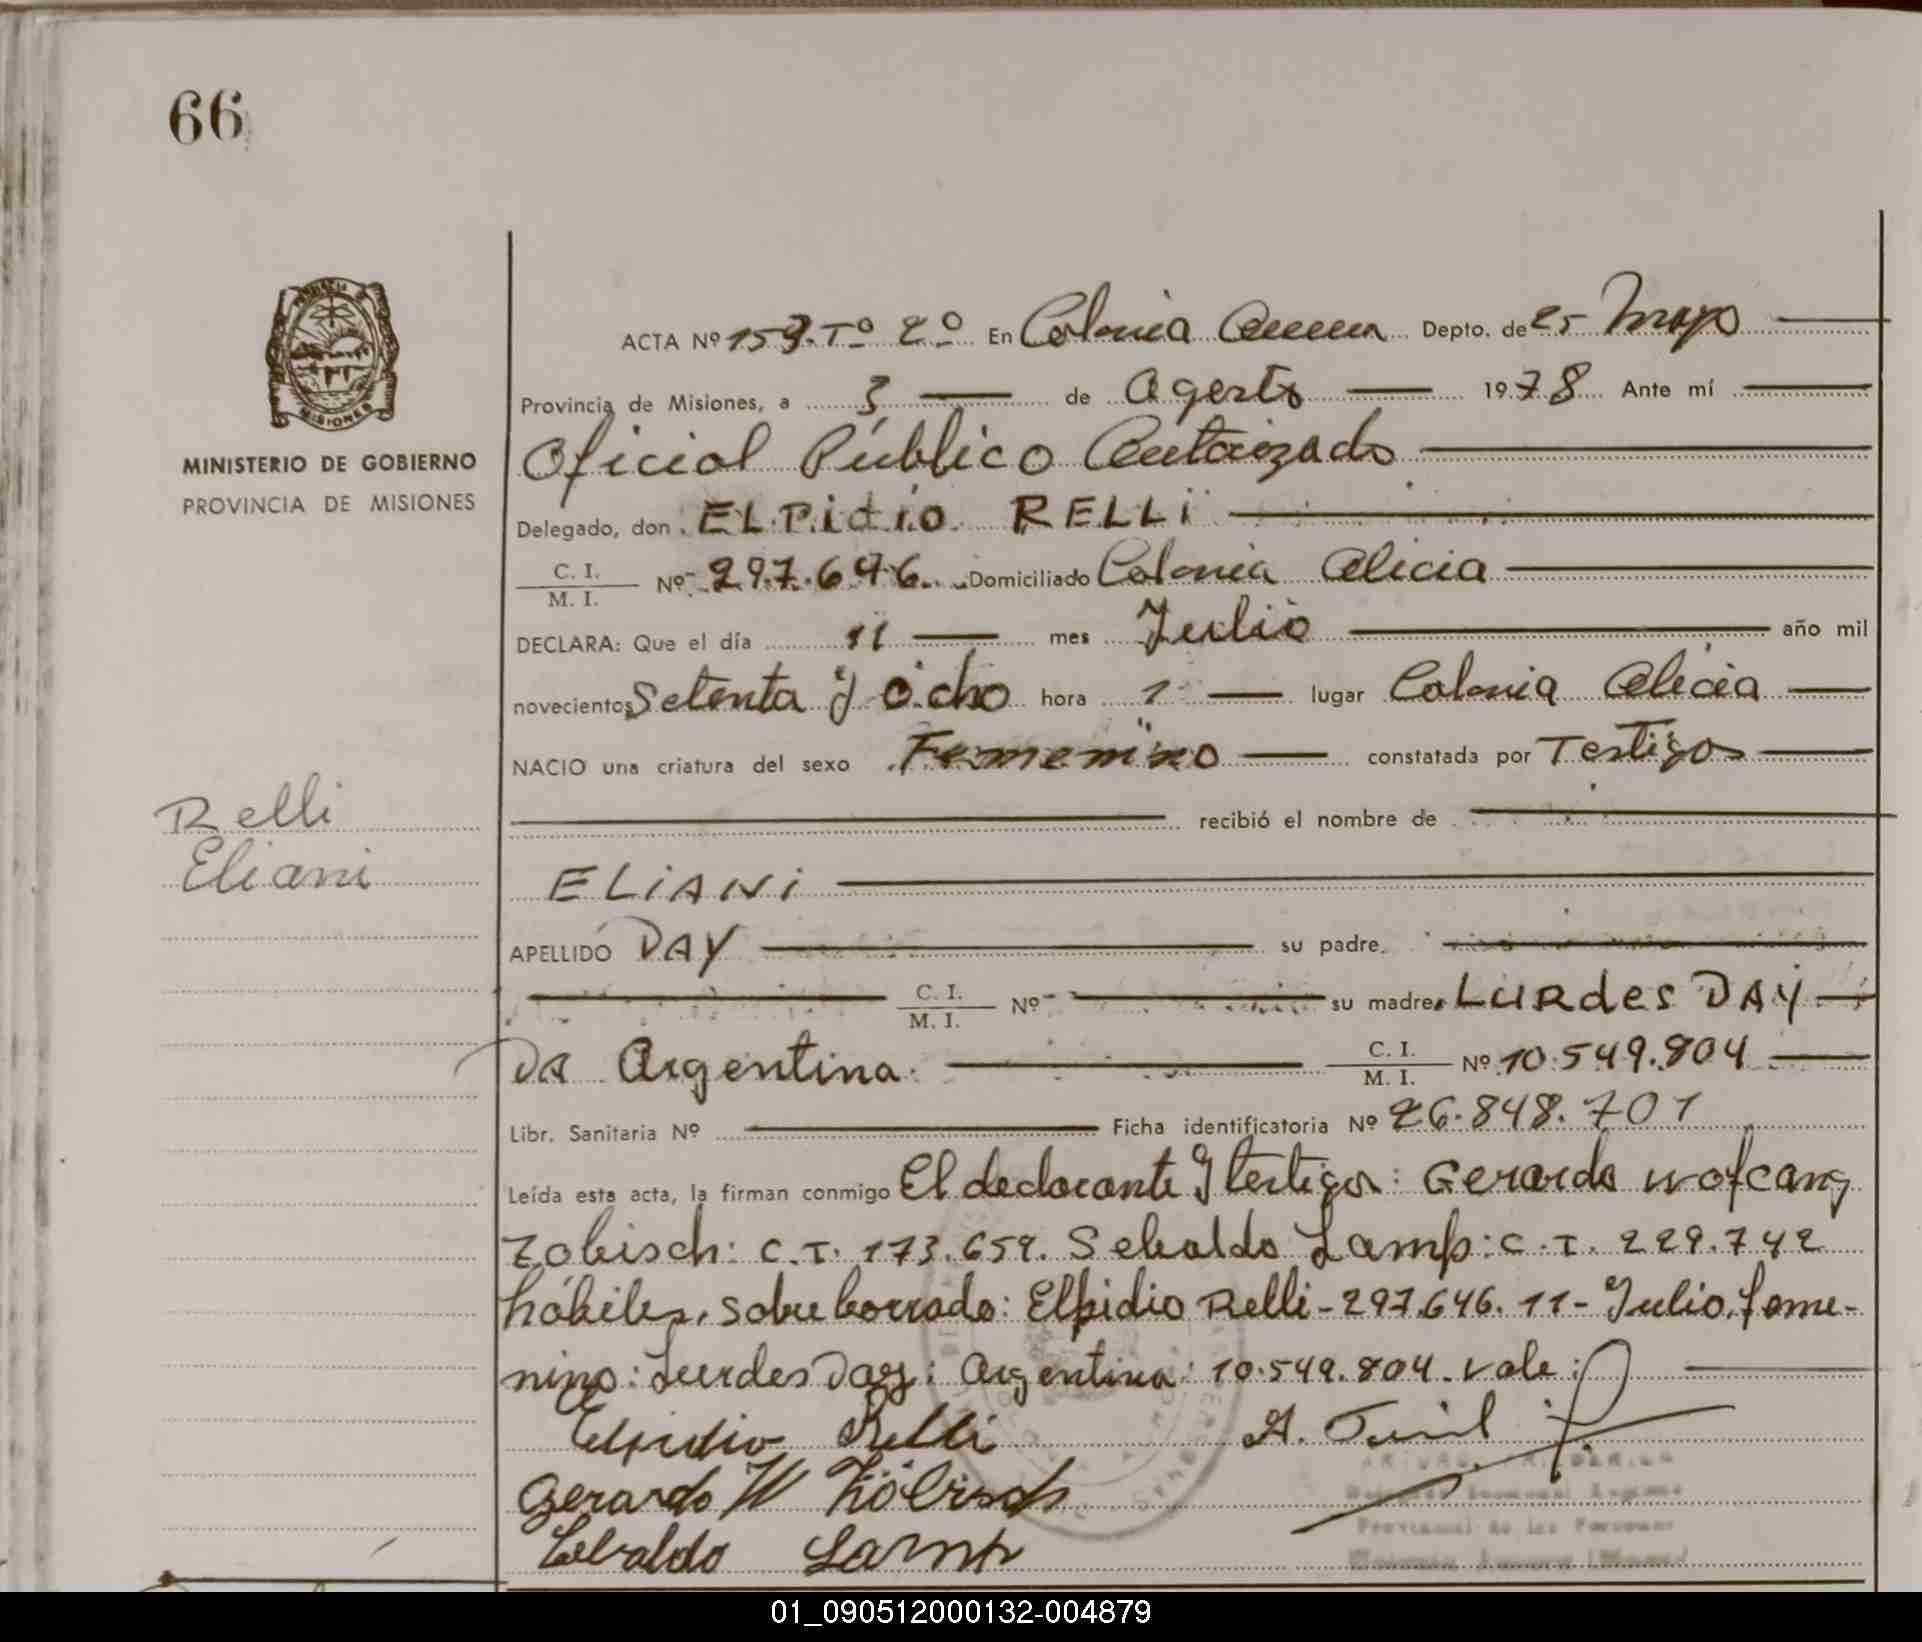 66
MINISTERIO DE GOBIERNO
PROVINCIA DE MISIONES
ACTA Nº 159. Tº 2º En Colonia Aurora Depto. de 25 Mayo
Provincia de Misiones, a 3 de Agosto 1978 Ante mí
Oficial Público Autorizado
Delegado, don ELPidio RELLi
C. I. / M. I. Nº 297.646 Domiciliado Colonia Alicia
DECLARA: Que el día 11 mes Julio año mil
novecientos Setenta y Ocho hora 1 lugar Colonia Alicia
NACIO una criatura del sexo Femenino constatada por Testigos
recibió el nombre de
Relli
Eliani
ELiANi
APELLIDO DAY su padre
C. I. / M. I. Nº su madre LURdes DAY
DA Argentina. C. I. / M. I. Nº 10.549.804
Libr. Sanitaria Nº Ficha identificatoria Nº 26.848.701
Leída esta acta, la firman conmigo El declarante y testigos: Gerardo Wofcang
Zobisch: C.I. 173.659. Sebaldo Lamp: C.I. 229.742
hábiles. Sobre borrado: Elpidio Relli-297.646. 11-Julio. feme-
nino: Lurdes Day: Argentina: 10.549.804. Vale:
Elpidio Relli
Gerardo W Zöbisch
Sebaldo Lamp
PROVINCIA DE
MISIONES
01_090512000132-004879